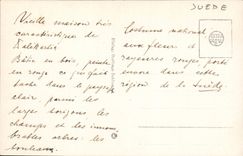 SUÈDE
Vieille maison très
caractéristique de
Bâtie en bois, peinte
en rouge ce qui fait
tache dans le paysage
clair, parmi les
larges horizons, les
champs et les innom-
brables arbres: les
bouleaux.
Costume national
aux fleurs et
rayures rouges porté
encore dans cette
région de la Suède